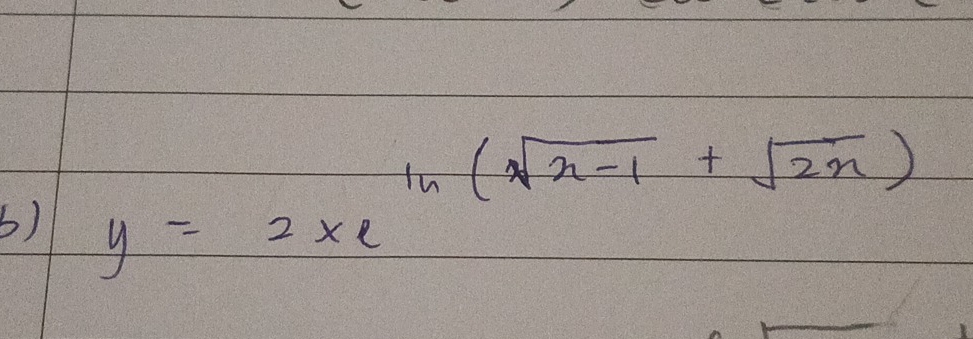 b) y = 2 × e^ln(√x-1 + √2x)